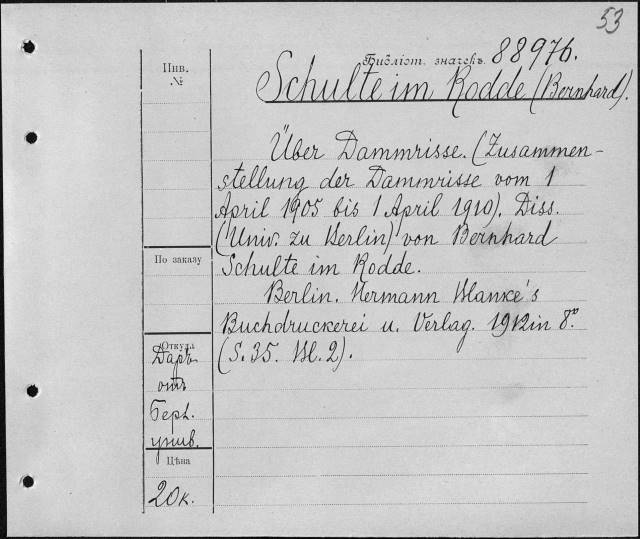 53
Библіот. значекъ. 88976.
Инв.
№
Schulte im Rodde (Bernhard).
Über Dammrisse. (Zusammen-
stellung der Dammrisse vom 1
April 1905 bis 1 April 1910). Diss.
(Univ. zu Berlin) von Bernhard
По заказу
Schulte im Rodde.
Berlin. Hermann Blanke's
Buchdruckerei u. Verlag. 1912 in 8º.
Откуда
(S. 35. Bl. 2).
Даръ
отъ
Берл.
унив.
Цѣна
20к.